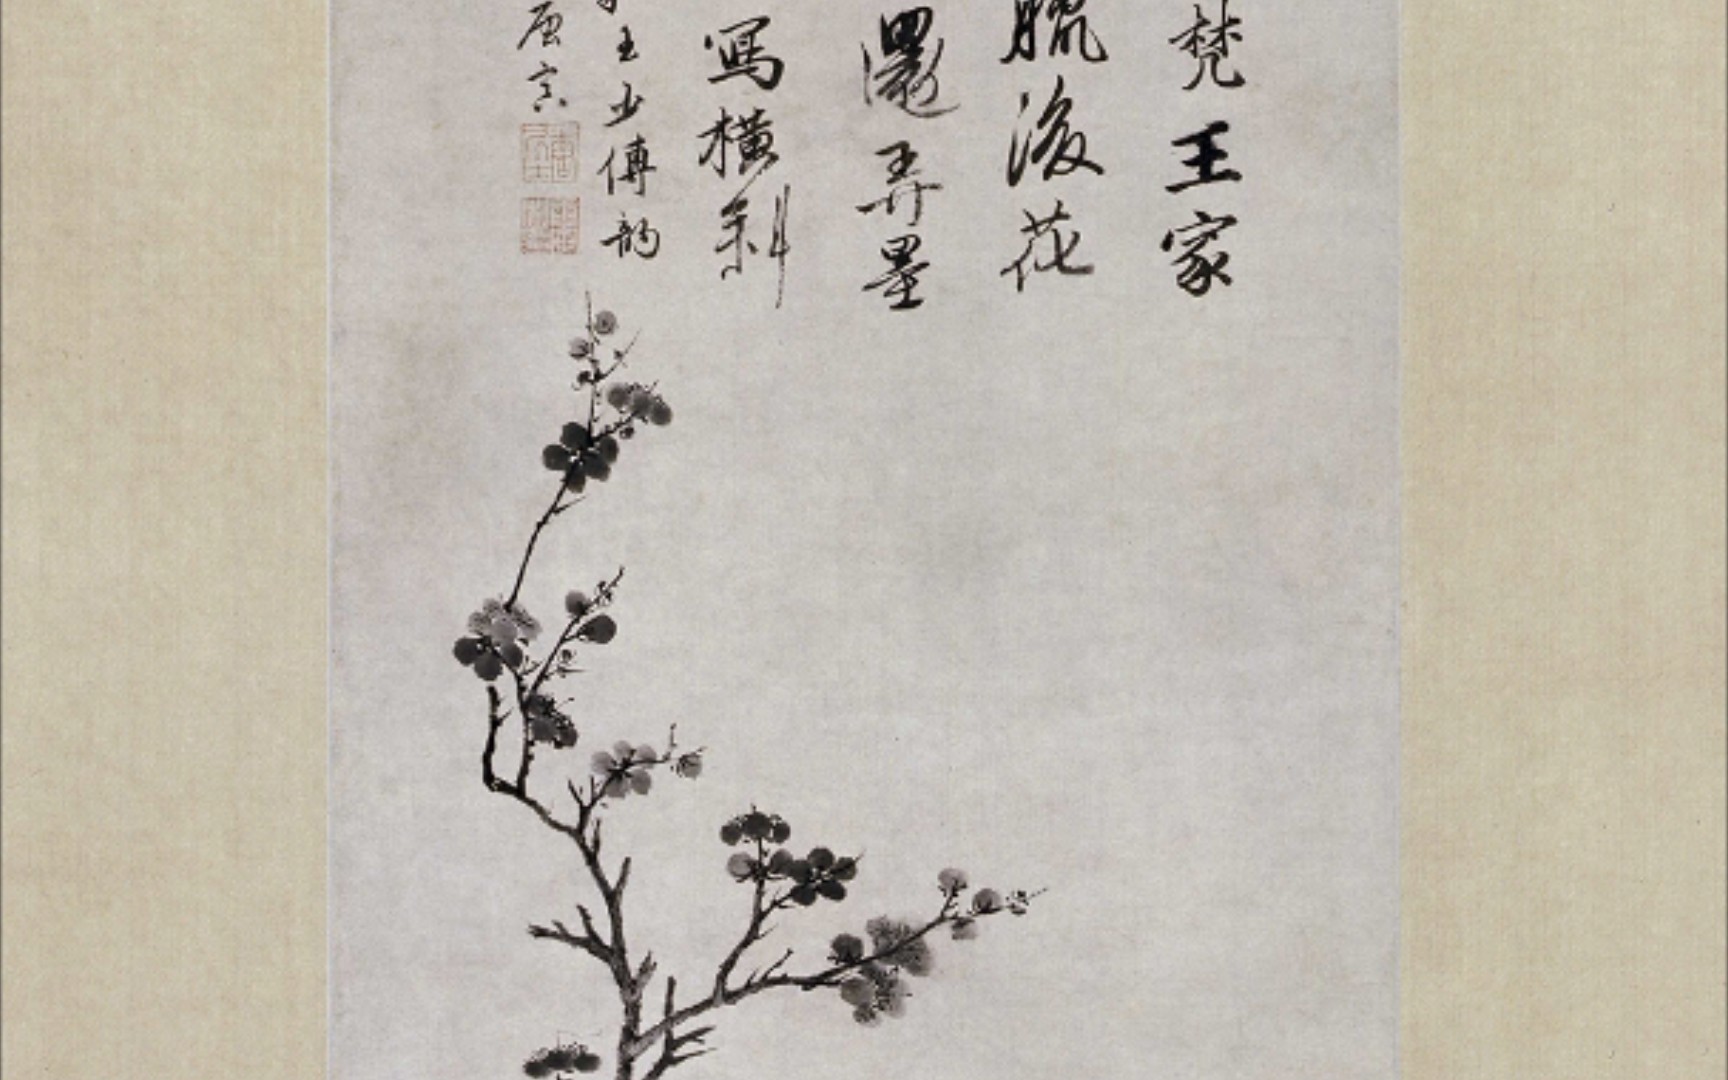 梵王家
臘後花
還弄墨
寫橫斜
王少傅韵
唐寅